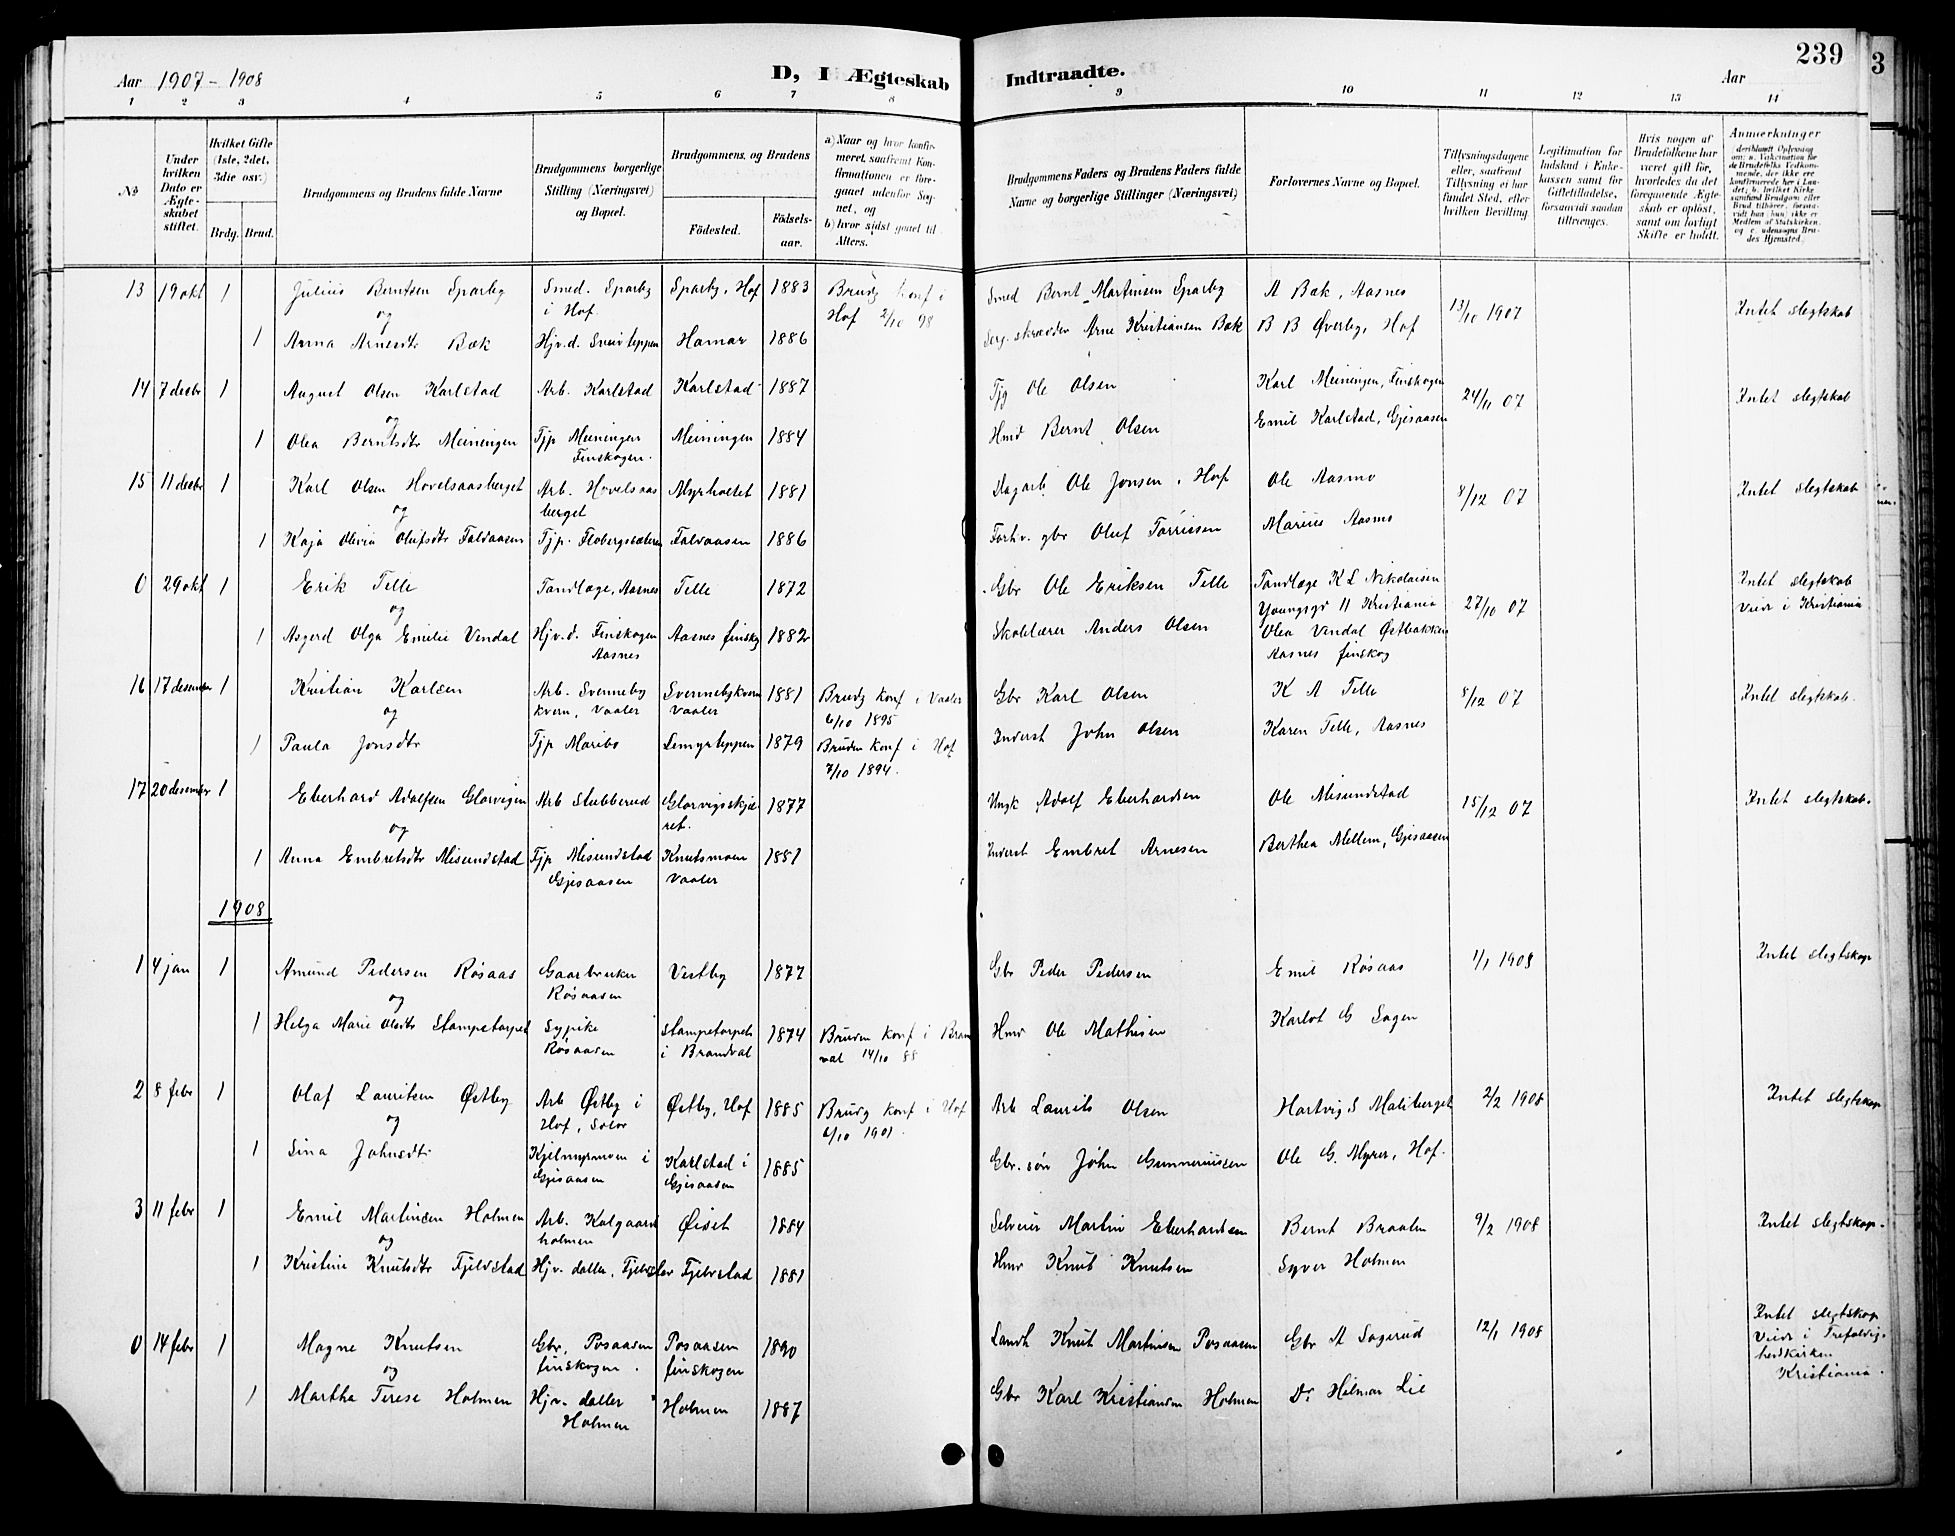 239
3
Aar 1907 - 1908
D, I Ægteskab Indtraadte.
Aar
1 2 3 4 5 6 7 8 9 10 11 12 13 14
No
Under hvilken Dato er Ægteskabet stiftet.
Hvilket Gifte (1ste, 2det, 3die osv.)
Brdg. Brud.
Brudgommens og Brudens fulde Navne
Brudgommens borgerlige Stilling (Næringsvei) og Bopæl.
Brudgommens og Brudens
Födested.
Födselsaar.
a) Naar og hvor konfirmeret, saafremt Konfirmationen er foregaaet udenfor Sognet, og
b) hvor sidst gaaet til Alters.
Brudgommens Faders og Brudens Faders fulde Navne og borgerlige Stillinger (Næringsvei)
Forlovernes Navne og Bopæl.
Tillysningsdagene eller, saafremt Tillysning ei har fundet Sted, efter hvilken Bevilling.
Legitimation for Indskud i Enkekassen samt for Giftetilladelse, forsaavidt saadan tiltrænges.
Hvis nogen af Brudefolkene har været gift før, hvorledes da det foregaaende Ægteskab er opløst, samt om lovligt Skifte er holdt.
Anmerkninger
13 19 okt 1 Julius Berntsen Sparby Smed. Sparby i Hof. Sparby, Hof 1883 Brudg konf i Hof 2/10 98 Smed Bernt Martinsen Sparby A Bæk, Aasnes 13/10 1907 Intet slegtskab
og
1 Anna Arnesdtr Bæk Hjv.d. Hamar 1886 skrædder Arne Kristiansen Bæk B B Øverby, Hof
14 7 desbr 1 August Olsen Karlstad Arb. Karlstad Karlstad 1887 Tjg Ole Olsen Karl Meiningen, Finskogen 24/11 07 Intet slegtskab
og
1 Olea Berntsdtr Meiningen Tjp Meiningen Finskogen. Meiningen 1884 Hmd Bernt Olsen Emil Karlstad, Gjesaasen
15 11 desbr 1 Karl Olsen Hovelsaasberget Arb. Hovelsaasberget Myrholtet 1881 Dagarb Ole Jonsen, Hof Ole Aasmo 8/12 07 Intet slegtskab
og
1 Kaja Olivia Olufsdtr Falvaasen Tjp. Flobergsæteren Falvaasen 1886 Forhv. gbr Oluf Tørrissen Marius Aasmo
0 29 okt 1 Erik Telle Tandlæge, Aasnes Telle 1872 Gbr Ole Eriksen Telle Tandlæge K L Nikolaisen Youngsgd 11 Kristiania 27/10 07 Intet slegtskab Viede i Kristiania
og
1 Asgerd Olga Emilie Vendal Hjv.d. Finskogen Aasnes Aasnes finskog 1882 Skolelærer Anders Olsen Olea Vendal Østbakken Aasnes finskog
16 17 desember 1 Kristian Karlsen Arb. Svennebykvern, Vaaler Svennebykvern Vaaler 1881 Brudg konf i Vaaler 6/10 1895 Gbr Karl Olsen K A Telle 8/12 07 Intet slegtskab.
og
1 Paula Jonsdtr Tjp Maribo Lemyrteppen 1879 Bruden konf i Hof 7/10 1894. Inderst John Olsen Karen Telle, Aasnes
17 20 desember 1 Eberhard Adolfsen Glorvigen Arb Stubberud Glorvigsskjæret. 1877 Ungk Adolf Eberhardsen Ole Misundstad 15/12 07 Intet slegtskab.
og
1 Anna Embretsdtr Misundstad Tjp Misundstad Gjesaasen Knutsmoen Vaaler 1881 Inderst Embret Arnesen Berthea Mellem, Gjesaasen
1908
1 4 jan 1 Amund Pedersen Røsaas Gaarbruker Røsaasen Vestby 1877 Gbr Peder Pedersen Emil Røsaas 1/1 1908 Intet slegtskap
og
1 Helga Marie Olsdtr Stampetorpet Sypike Røsaasen Stampetorpet i Brandval 1874 Bruden konf i Branval 14/10 88 Hmd Ole Mathisen Karlot G Sagen
2 8 febr 1 Olaf Lauritsen Østby Arb Østby i Hof, Solør Østby, Hof 1885 Brudg konf i Hof 6/10 1901. Arb Laurits Olsen Hartvig S Maliberget 2/2 1908 Intet slegtskap
og
1 Sina Johnsdtr Kjelmyrmoen i Gjesaasen Karlstad i Gjesaasen 1885 Gbr.søn John Gunneriussen Ole G. Myrer, Hof.
3 11 febr 1 Emil Martinsen Holmen Arb. Kalgaardholmen Øiset 1884 Selveier Martin Eberhardsen Bernt Braaten 9/2 1908 Intet slegtskap.
og
1 Kristine Knutsdtr Fjeldstad Hjv. datter, Fjeldstad Fjeldstad 1881 Hmd Knut Knutsen Syver Holmen
0 14 febr 1 Magne Knutsen Gbr, Posaasen finskogen. Posaasen finskogen 1880 Landh Knut Martinsen Posaasen Gbr A Sagerud 12/1 1908 Intet slegtskap Viede i Trefoldighedskirken Kristiania.
og
1 Martha Terese Holmen Hjv. datter Holmen Holmen 1887 Gbr Karl Kristiansen Holmen Dr Hilmar Lie